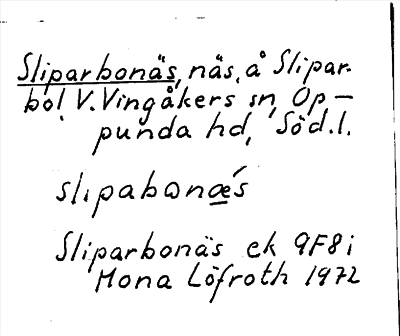 Sliparbonäs, näs, å Slipar-
bol V. Vingåkers sn, Op-
punda hd, Söd. l.
slipabωnǽs
Sliparbonäs ek 9F8i
Mona Löfroth 1972